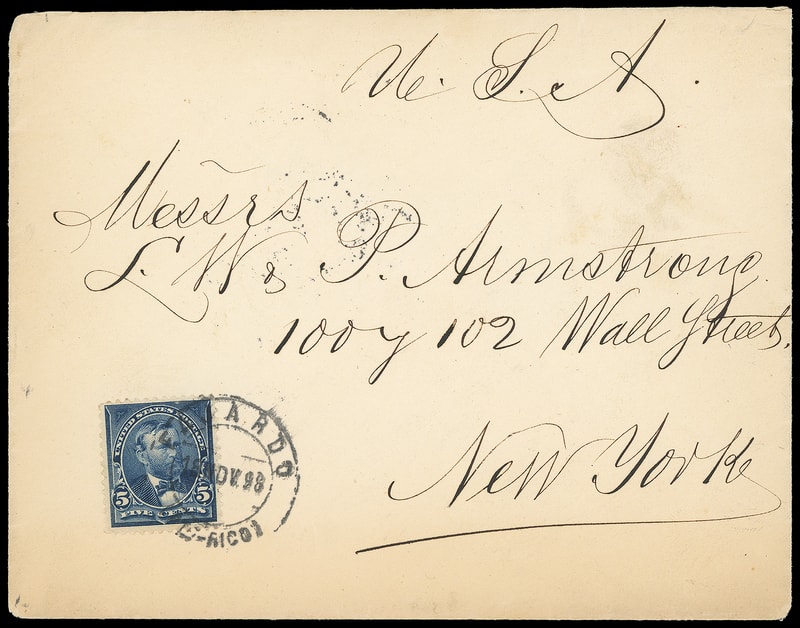 U. S. A.
Messrs
L. W. & P. Armstrong
100 y 102 Wall Street.
New York
UNITED STATES POSTAGE
5 5
FIVE CENTS
ARDO
NOV. 98
RICO